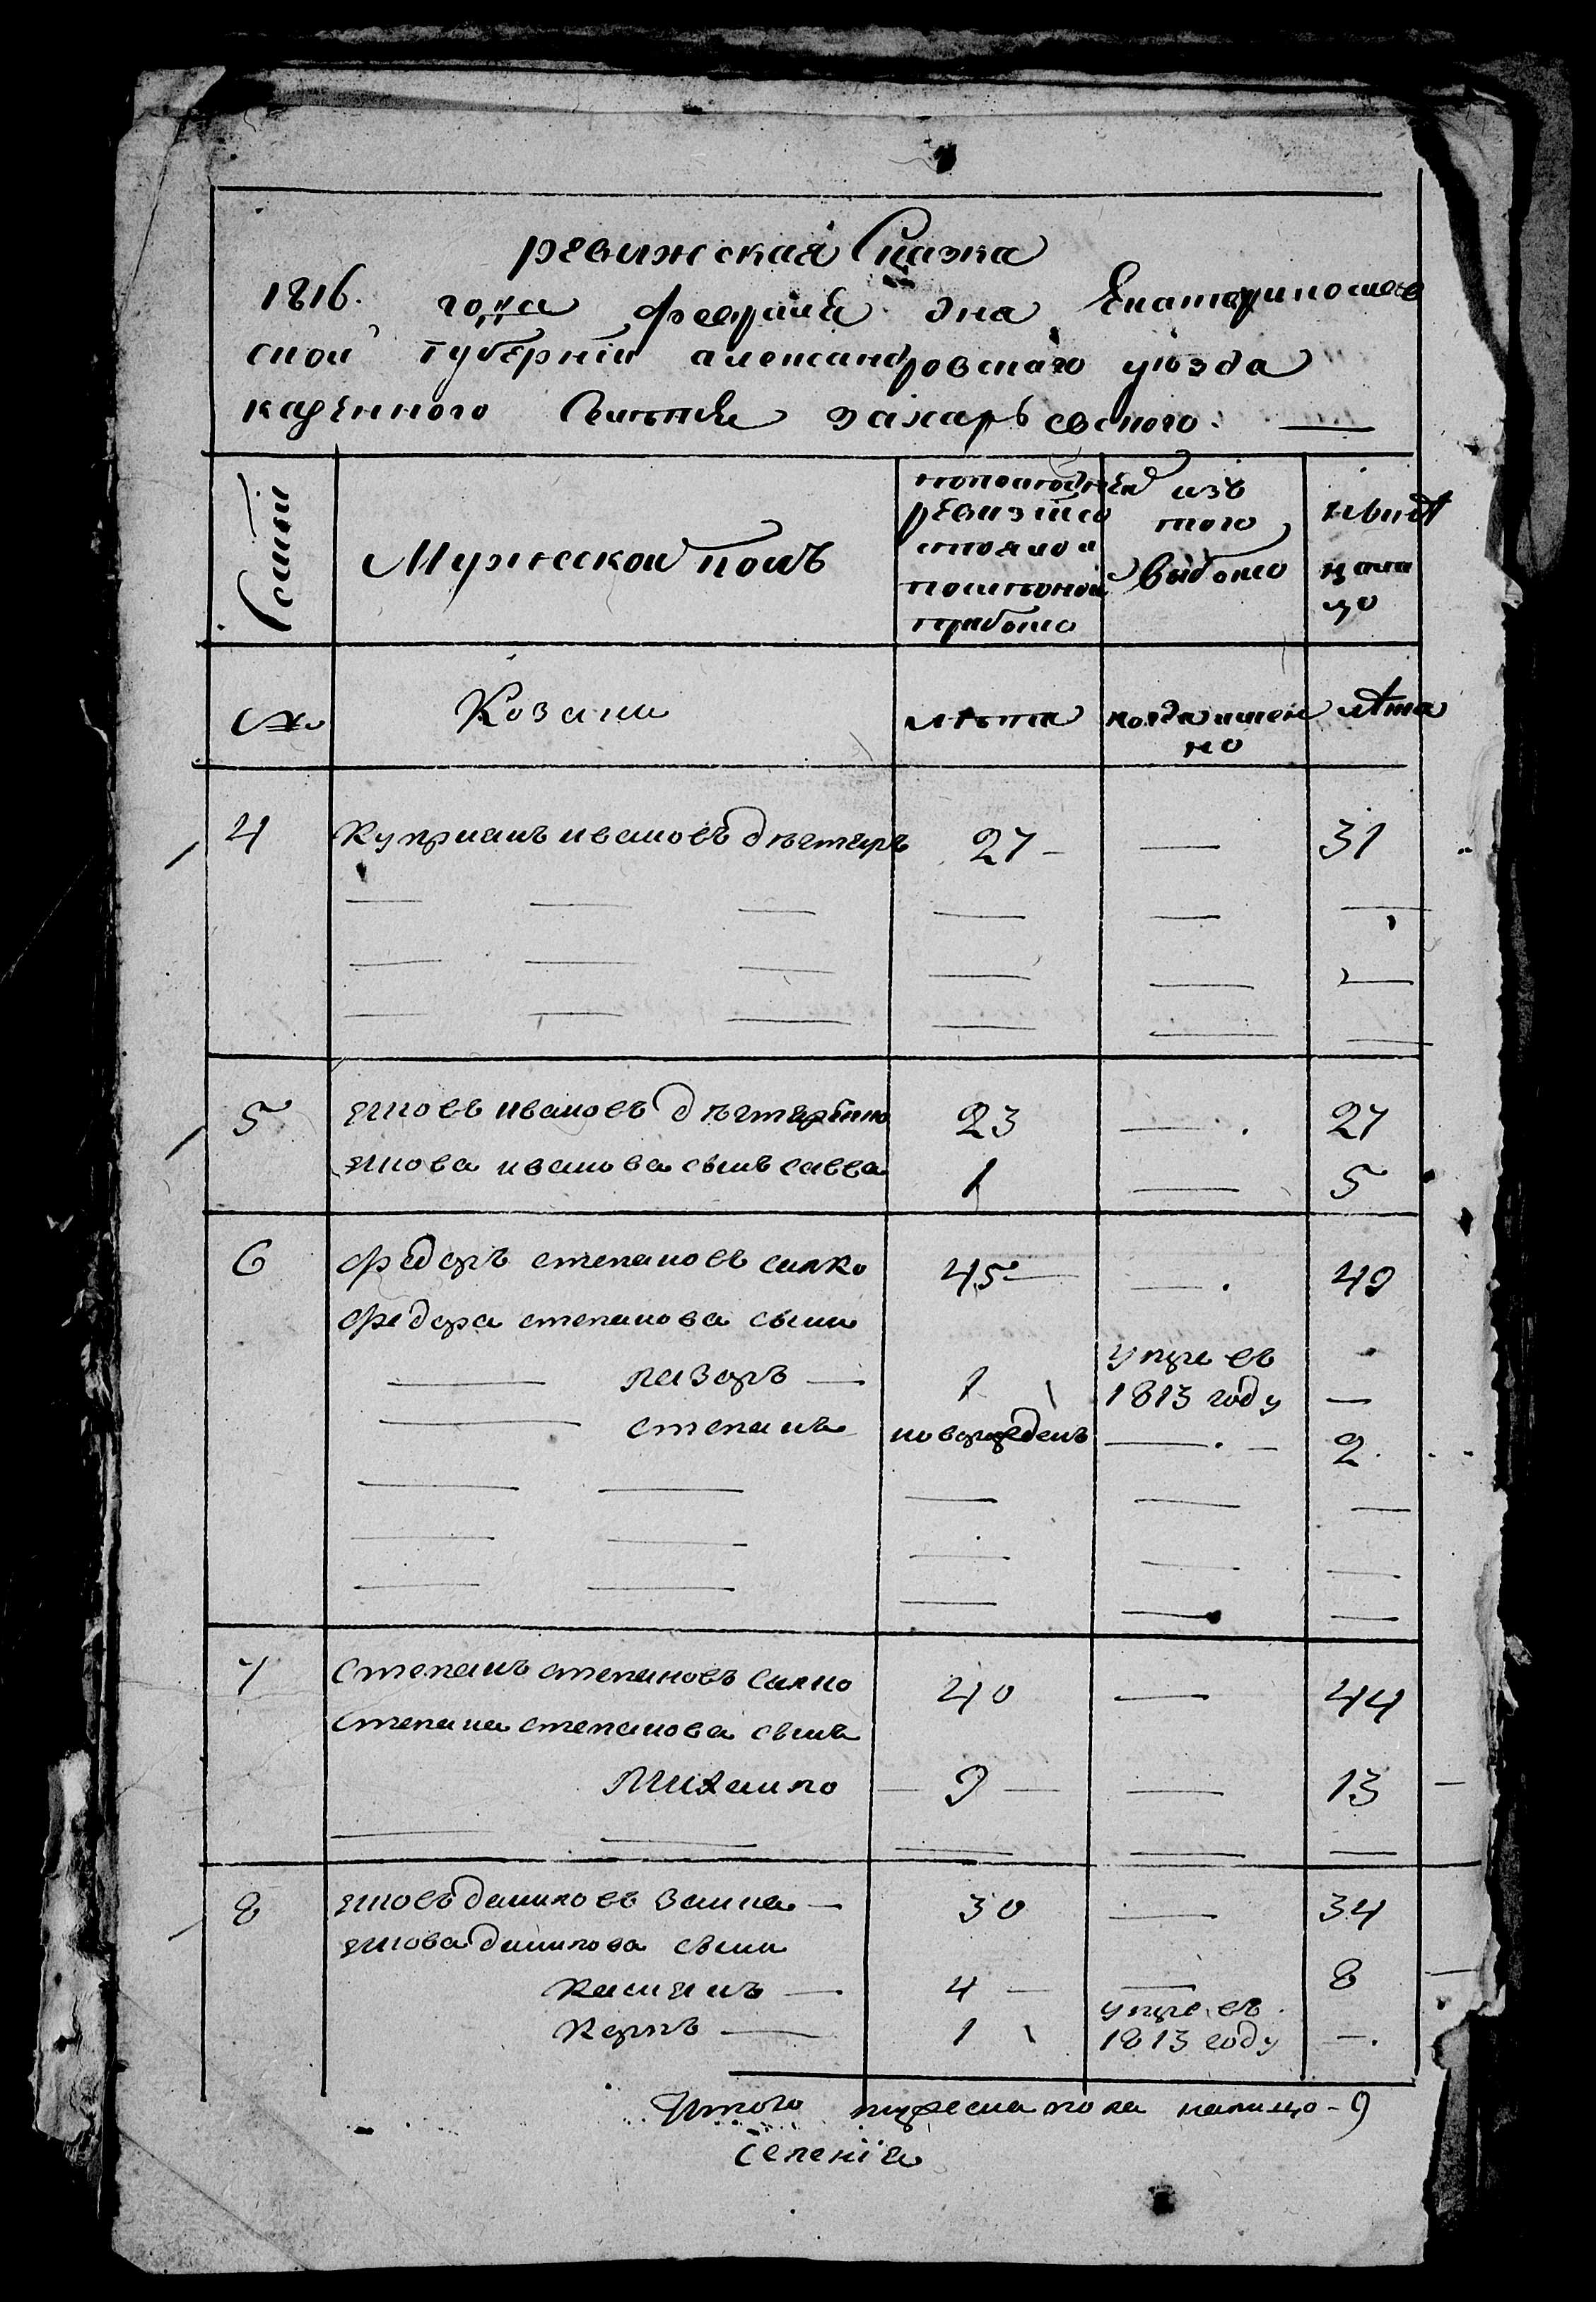 ревижская Сказка
1816. года февраля дня Екатеринослав
ской губернїи александровскаго уѣзда
казенного Селенїя захарьевского.
Семьи
Мужеской полъ
попоследней
ревизїи
состояло и
после оной
прибыло
изъ
того
выбыло
нынѣ
на ли
цо
№
Козаки
лѣта
когда имен
но
лѣта
4 Куприанъ ивановъ дегтяръ 27 — — 31
5 яковъ ивановъ дегтяренко 23 — 27
якова иванова сынъ савва 1 — 5
6 федоръ степановъ саяко 45 — — 49
федора степанова сыни
— лазоръ — 1 умре въ 1813 году —
— степанъ новорожденъ — 2
7 Степанъ степановъ Саяко 40 — 44
Степана степанова сынъ
Михайло — 9 — — 13
8 яковъ даниловъ Заика — 30 — 34
якова данилова сыни
Касиянъ — 4 — — 8
Карпъ — 1 умре въ 1813 году —
Итого мужеска пола налицо – 9
Селенїя